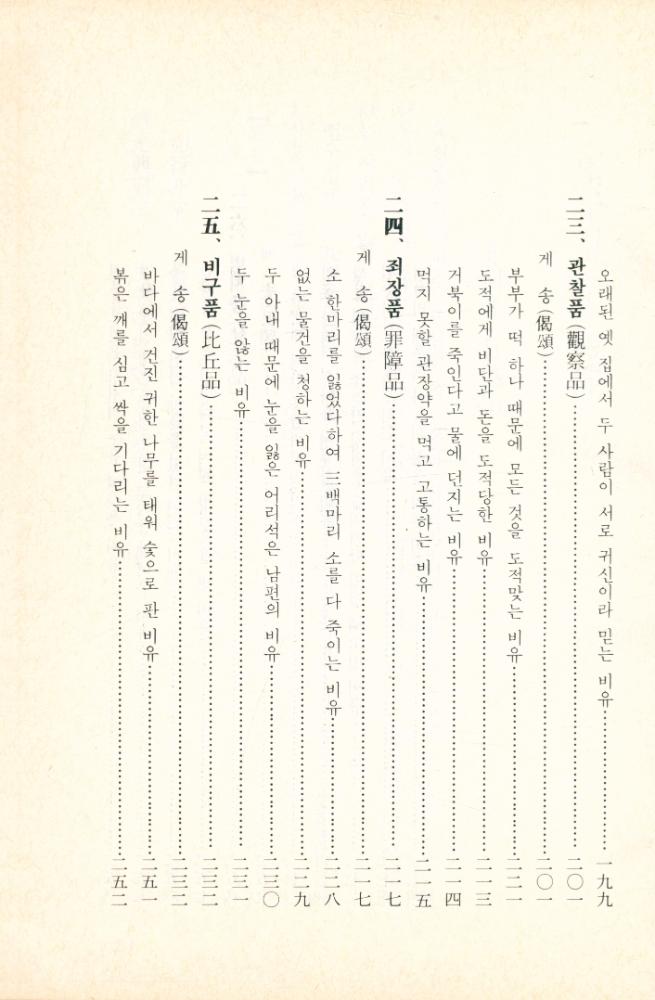 오래된 옛 집에서 두 사람이 서로 귀신이라 믿는 비유…………一九九
二三、관찰품(觀察品)…………二〇一
게 송(偈頌)…………二〇一
부부가 떡 하나 때문에 모든 것을 도적맞는 비유…………二二一
도적에게 비단과 돈을 도적당한 비유…………二一三
거북이를 죽인다고 물에 던지는 비유…………二一四
먹지 못할 관장약을 먹고 고통하는 비유…………二一五
二四、죄장품(罪障品)…………二一七
게 송(偈頌)…………二一七
소 한마리를 잃었다하여 三백마리 소를 다 죽이는 비유…………二二八
없는 물건을 청하는 비유…………二二九
두 아내 때문에 눈을 잃은 어리석은 남편의 비유…………二三〇
두 눈을 앓는 비유…………二三一
二五、비구품(比丘品)…………二三二
게 송(偈頌)…………二三二
바다에서 건진 귀한 나무를 태워 숯으로 판 비유…………二五一
볶은 깨를 심고 싹을 기다리는 비유…………二五二